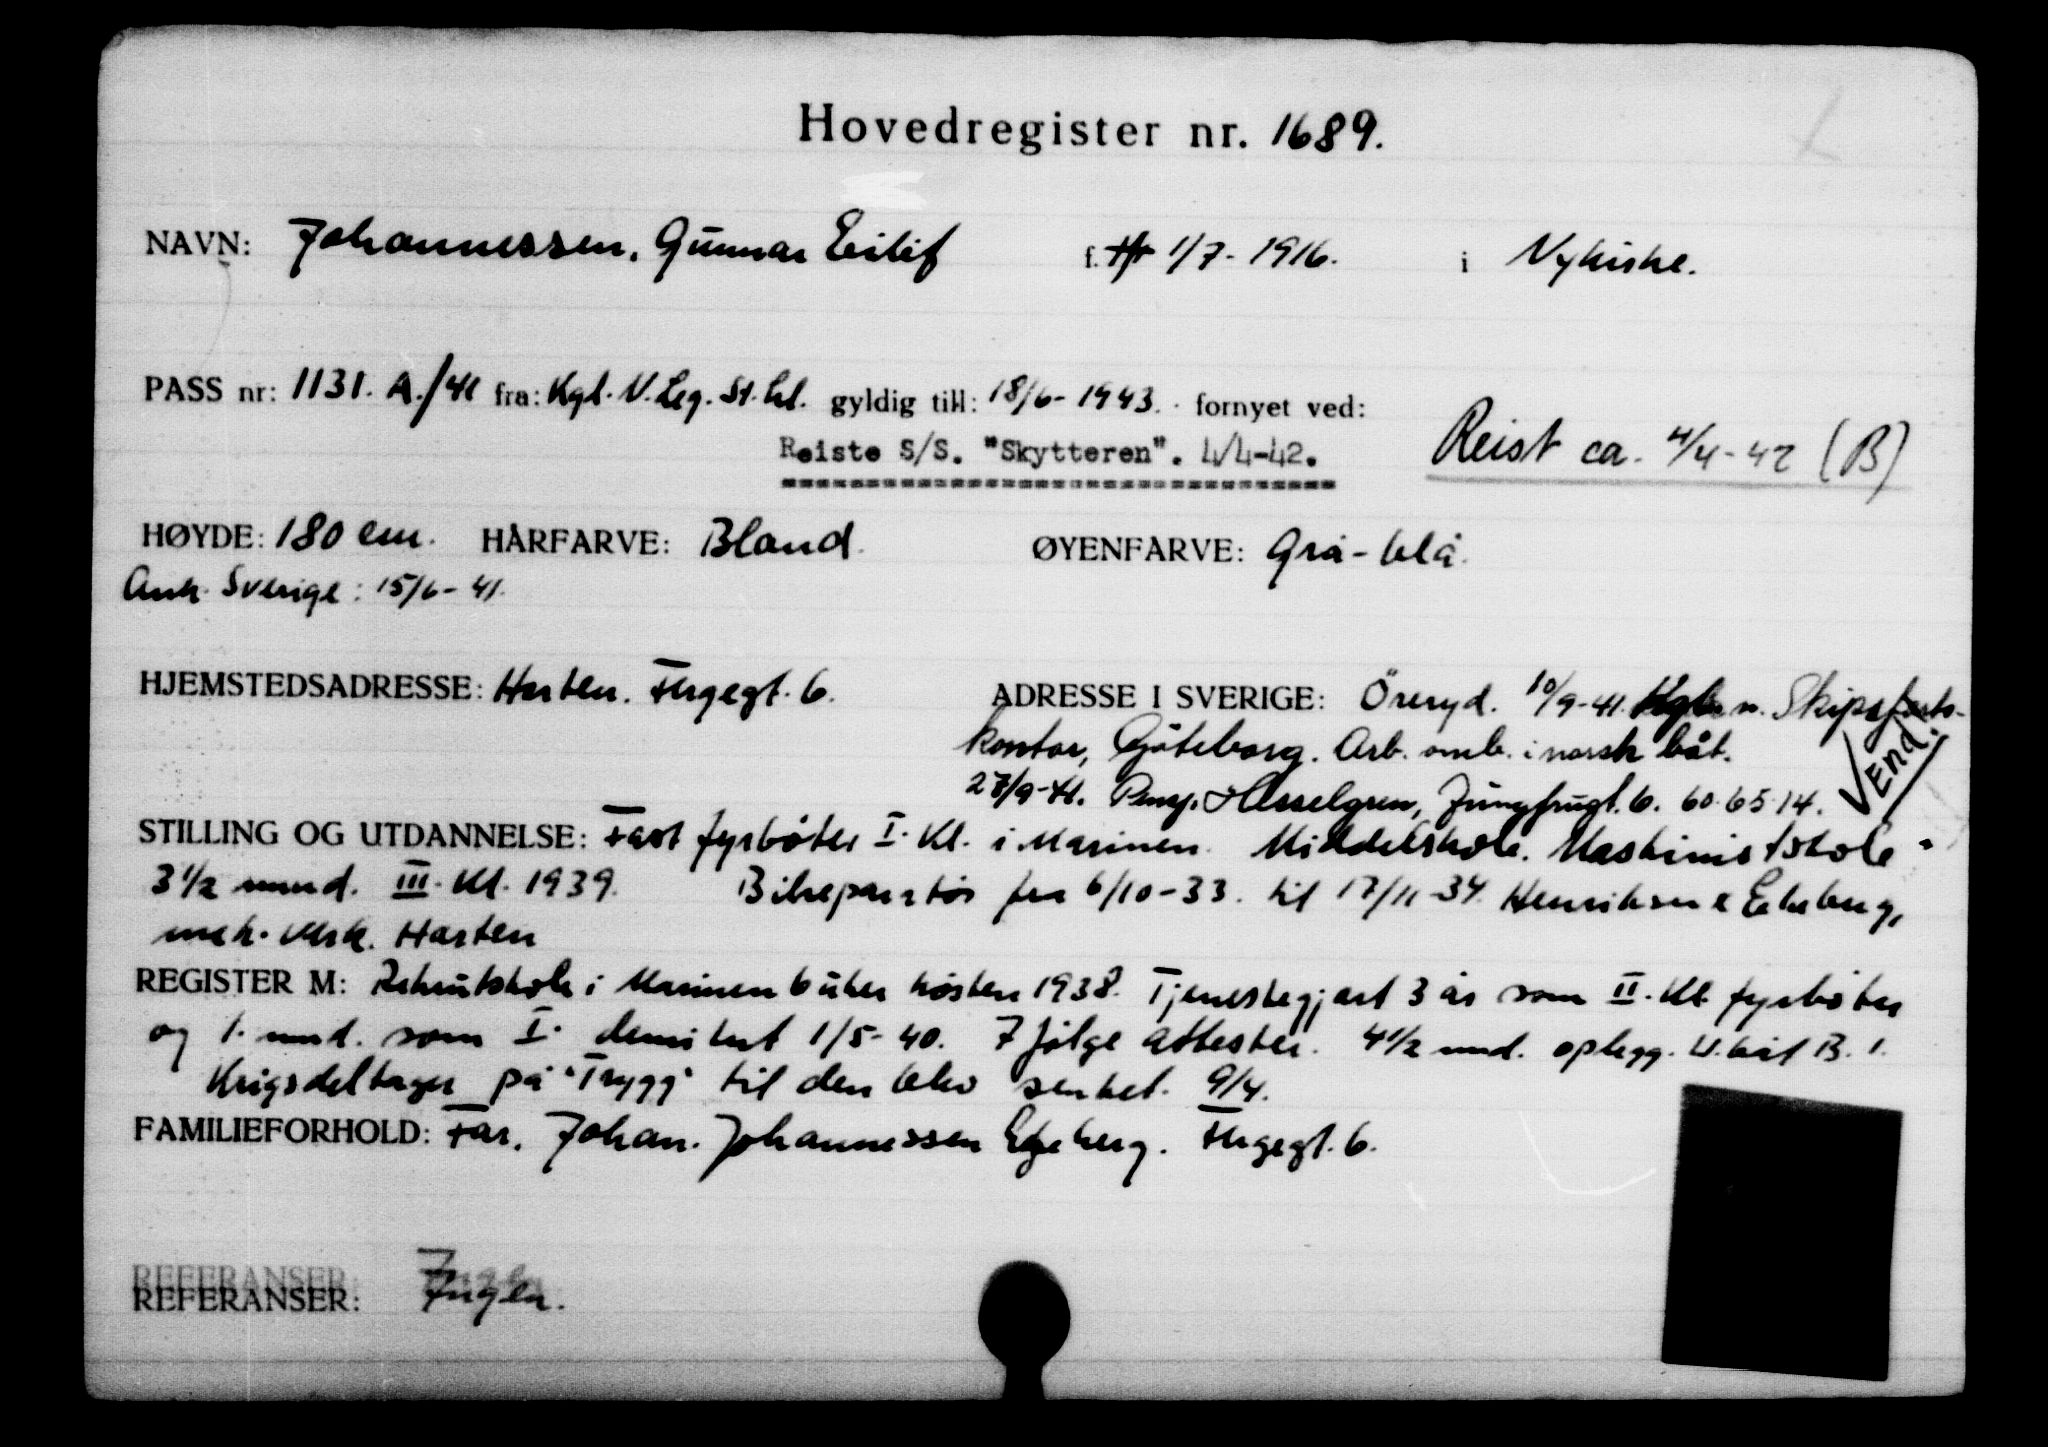 Hovedregister nr. 1689.
NAVN: Johannessen, Gunnar Eilif f. 1/7- 1916. i Nykirke.
PASS nr: 1131. A./41 fra: Kgl. N. Leg. St. hl. gyldig till: 18/6- 1943. fornyet ved:
Reiste S/S. "Skytteren". 4/4-42.
Reist ca. 4/4-42 (B)
HØYDE: 180 cm. HÅRFARVE: Blond. ØYENFARVE: Grå-blå.
Ank. Sverige: 15/6- 41.
HJEMSTEDSADRESSE: Horten. Fergegt. 6. ADRESSE I SVERIGE: Öreryd. 10/9-41. n. Skipsfarts-
kontor, Göteborg. Arb. omb. i norsk båt.
27/9-41. Pensj. Hesselgren, Jungfrugt. 6. 60.65.14.
VEND!
STILLING OG UTDANNELSE: Fast fyrbøter I. Kl. i Marinen. Middelskole. Maskinistskole
3 1/2 mnd. III. Kl. 1939. Bilreparatør fra 6/10-33. til 17/11-34. Henriksen & Ekeberg,
mek. Verk. Horten
REGISTER M: Rekrutskole i Marinen 6 uker høsten 1938. Tjenestegjort 3 år som II. Kl. fyrbøter
og 1. mnd. som I. demitert 1/5- 40. 7 følge attester. 4 1/2 mnd. oplegg. U. båt B. 1.
Krigsdeltager på "Trygg" til den blev senket. 9/4.
FAMILIEFORHOLD: Far. Johan. Johannessen Ekeberg. Fergegt. 6.
REFERANSER: Ingen.